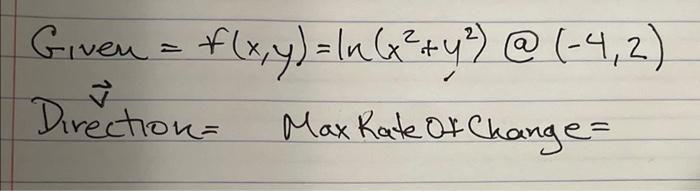 Given = f(x,y)=ln(x²+y²) @ (-4,2)
v⃗
Direction= Max Rate Of Change=